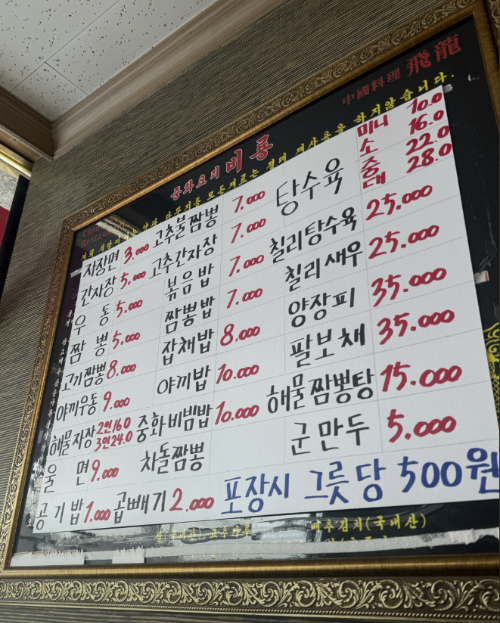 中國料理 飛龍
중화요리 비룡
자장면 3.000 고추불짬뽕 7.000 탕수육 미니 10.0
소 16.0
중 22.0
대 28.0
간자장 5.000 고추간자장 7.000 칠리탕수육 25.000
우동 5.000 볶음밥 7.000 칠리새우 25.000
짬뽕 5.000 짬뽕밥 7.000 양장피 35.000
고기짬뽕 8.000 잡채밥 8.000 팔보채 35.000
야끼우동 9.000 야끼밥 10.000 해물짬뽕탕 15.000
해물자장 2인 16.0 3인 24.0 중화비빔밥 10.000 군만두 5.000
울면 9.000 차돌짬뽕
공기밥 1.000 곱빼기 2.000 포장시 그릇당 500원
배추김치(국내산)